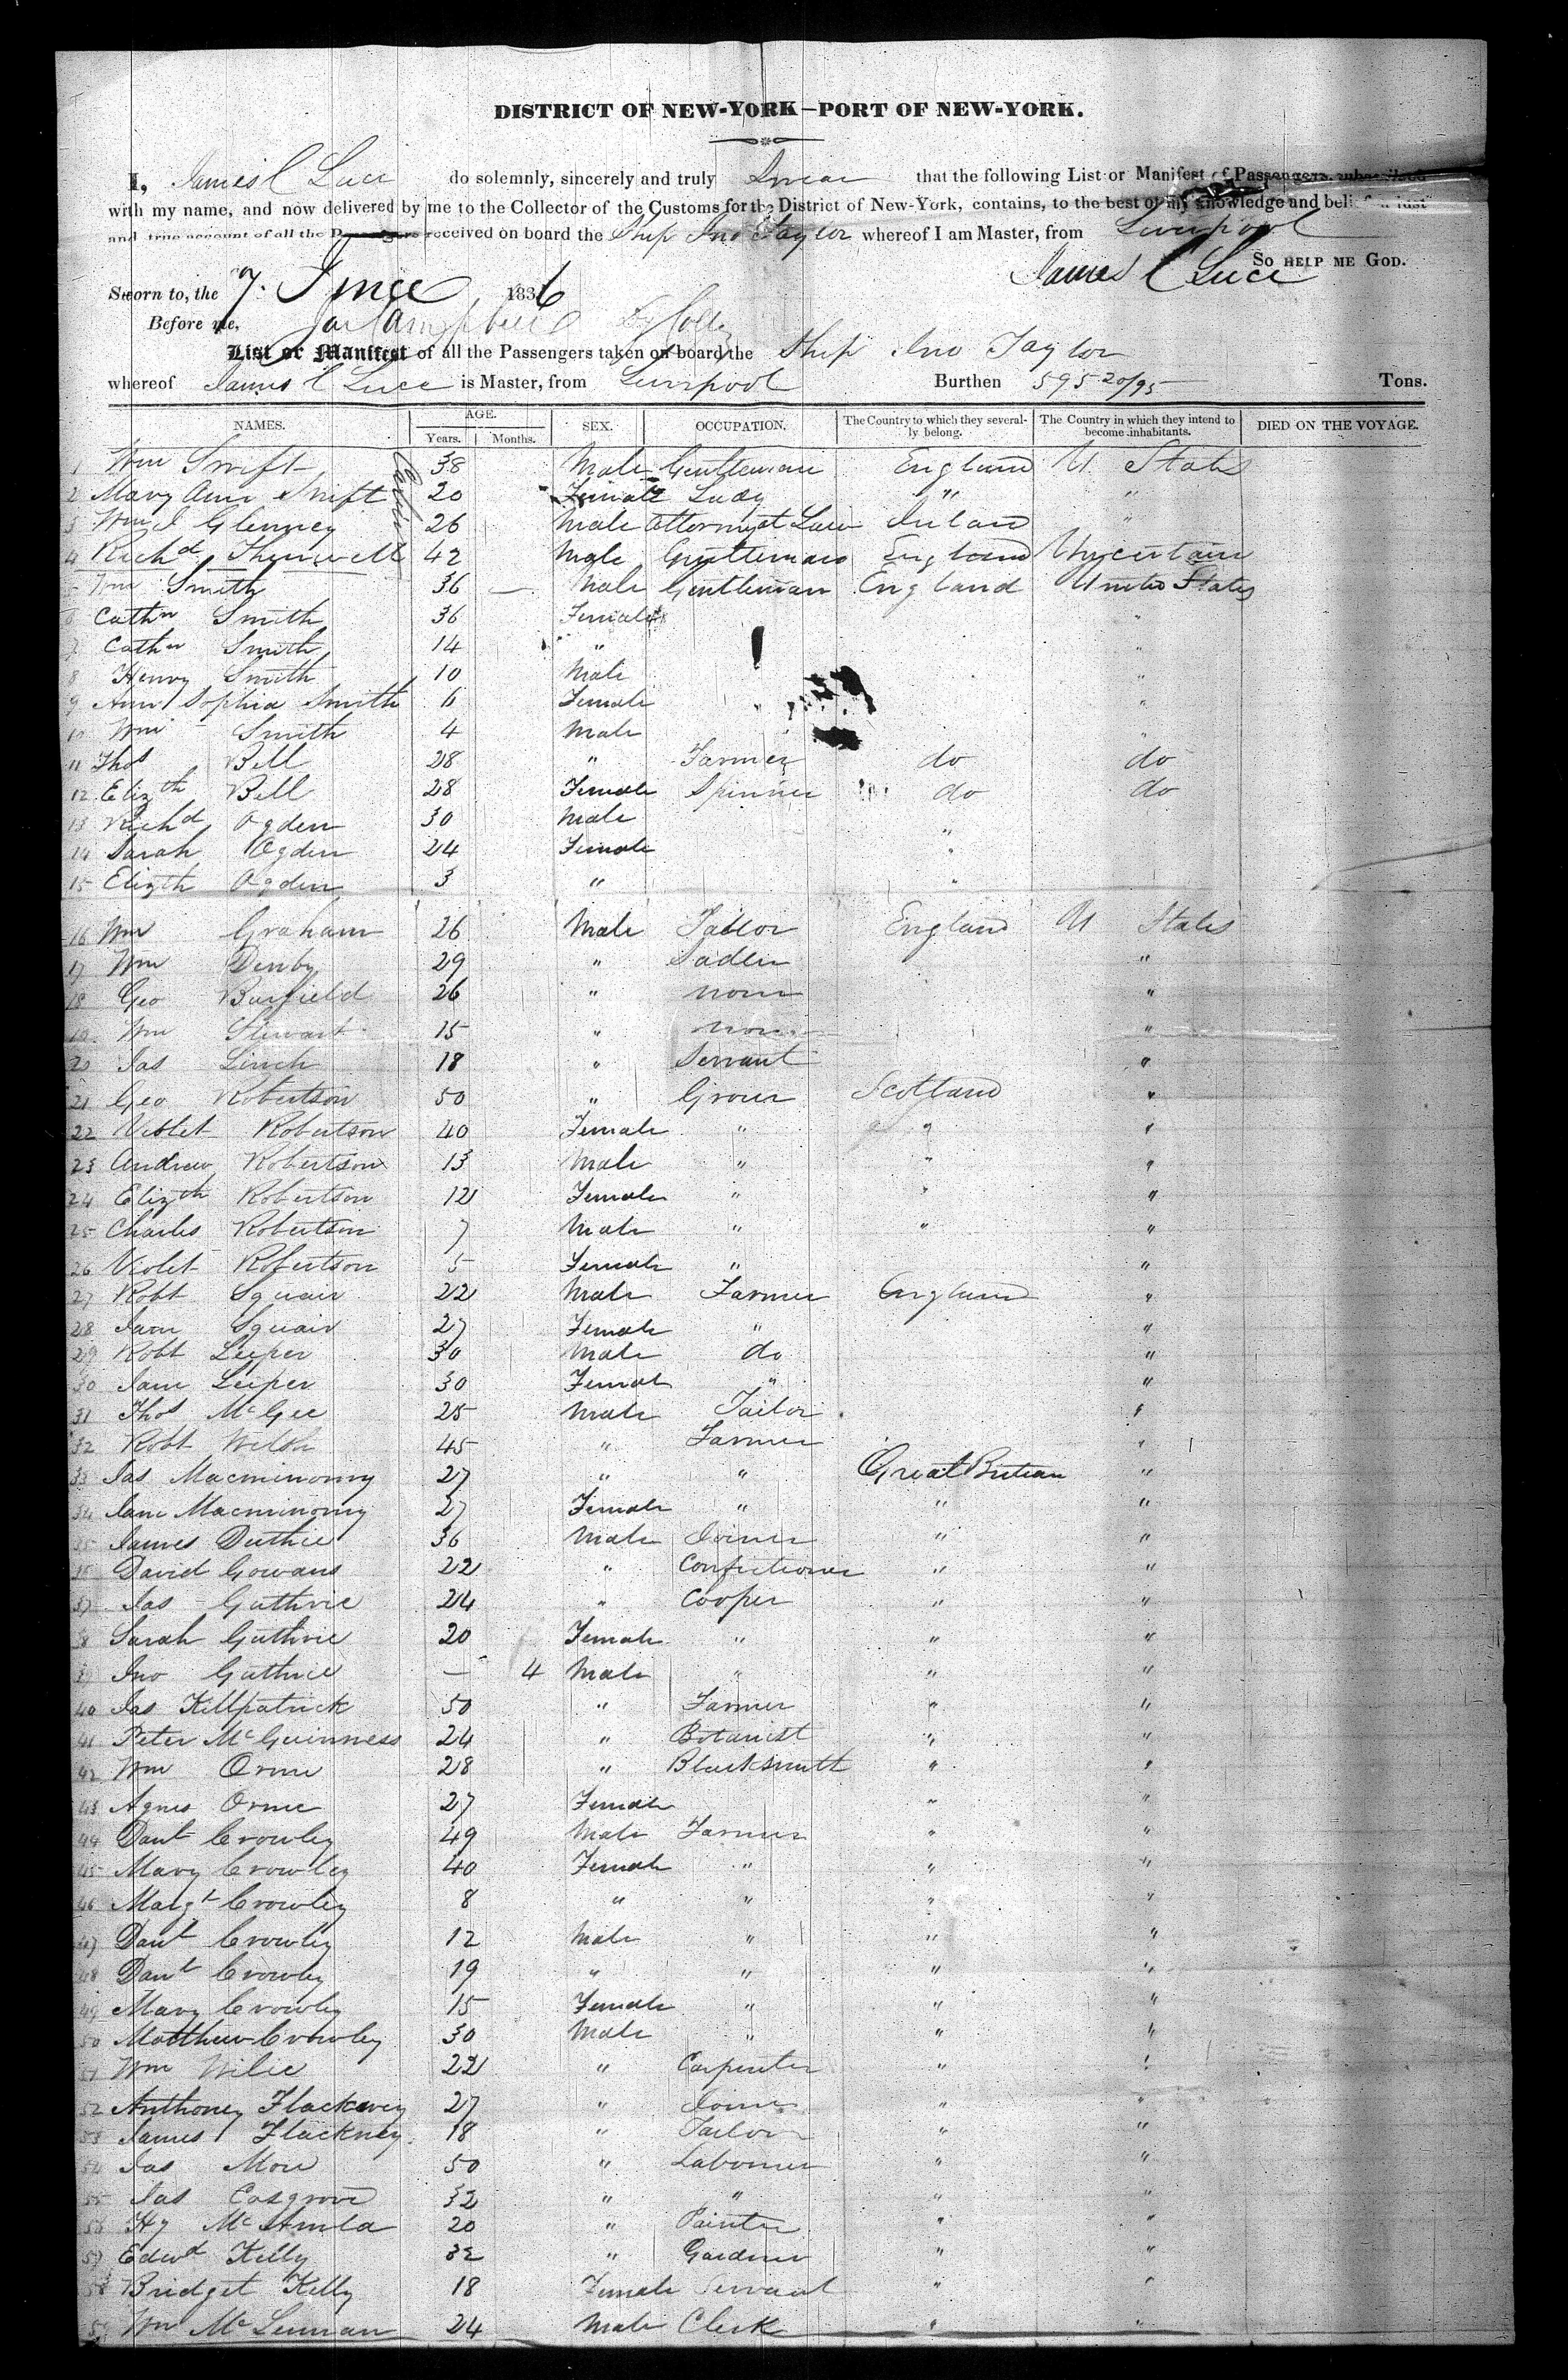 DISTRICT OF NEW-YORK—PORT OF NEW-YORK.
I, James C Luce do solemnly, sincerely and truly Swear that the following List or Manifest of Passengers
with my name, and now delivered by me to the Collector of the Customs for the District of New-York, contains, to the best of my knowledge and belief a just
and true account of all the Passengers received on board the Ship Jno Taylor whereof I am Master, from Liverpool
SO HELP ME GOD.
Sworn to, the 7. June 1836 James C Luce
Before me, Campbell
List or Manifest of all the Passengers taken on board the Ship Jno Taylor
whereof James C Luce is Master, from Liverpool Burthen 595 20/95 Tons.
NAMES. AGE. Years. Months. SEX. OCCUPATION. The Country to which they severally belong. The Country in which they intend to become inhabitants. DIED ON THE VOYAGE.
Cabin
1 Wm Swift 38 Male Gentleman England U States
2 Mary Ann Swift 20 Female Lady " "
3 Wm J Glenney 26 Male Attorney at Law Ireland "
4 Richd 42 Male Gentleman England Uncertain
Wm Smith 36 — Male Gentleman England United States
6 Cathn Smith 36 Female "
7 Cathn Smith 14 " "
8 Henry Smith 10 Male "
9 Ann Sophia Smith 6 Female "
10 Wm Smith 4 Male "
11 Thos Bell 28 " Farmer do do
12 Elizth Bell 28 Female Spinner do do
13 Richd Ogden 30 Male "
14 Sarah Ogden 24 Female "
15 Elizth Ogden 3 " "
16 Wm Graham 26 Male Tailor England U States
17 Wm Denby 29 " Sadler "
18 Geo Barfield 26 " none "
19 Wm Stewart 15 " none "
20 Jas Linch 18 " Servant "
21 Geo Robertson 50 " Grocer Scotland "
22 Violet Robertson 40 Female " " "
23 Andrew Robertson 13 Male " " "
24 Elizth Robertson 12 Female " " "
25 Charles Robertson 7 Male " " "
26 Violet Robertson 5 Female " "
27 Robt Squair 22 Male Farmer England "
28 Jane Squair 27 Female " "
29 Robt Leeper 30 Male do "
30 Jane Leeper 30 Female " "
31 Thos McGee 25 Male Tailor "
32 Robt Welsh 45 " Farmer "
33 Jas Macminomy 27 " " Great Britian "
34 Jane Macminomy 27 Female " " "
35 James Duthie 36 Male Joiner " "
36 David Gowans 22 " Confectioner " "
37 Jas Guthrie 24 " Cooper " "
38 Sarah Guthrie 20 Female " " "
39 Jno Guthrie — 4 Male " " "
40 Jas Killpatrick 50 " Farmer " "
41 Peter McGuinness 24 " Botanist " "
42 Wm Orme 28 " Blacksmith " "
43 Agnes Orme 27 Female " "
44 Danl Crowley 49 Male Farmer " "
45 Mary Crowley 40 Female " " "
46 Margt Crowley 8 " " " "
47 Danl Crowley 12 Male " " "
48 Danl Crowley 19 " " " "
49 Mary Crowley 15 Female " " "
50 Matthew Crowley 30 Male " " "
51 Wm Wilie 22 " Carpenter " "
52 Anthoney Flackney 27 " Joiner " "
53 James Flackney 18 " Tailor " "
54 Jas More 50 " Labourer " "
55 Jas Cosgrove 32 " " " "
56 Hy 20 " Painter " "
57 Edwd Kelly 32 " Gardner " "
58 Bridget Kelly 18 Female Servant " "
59 Wm McLennan 24 Male Clerk " "